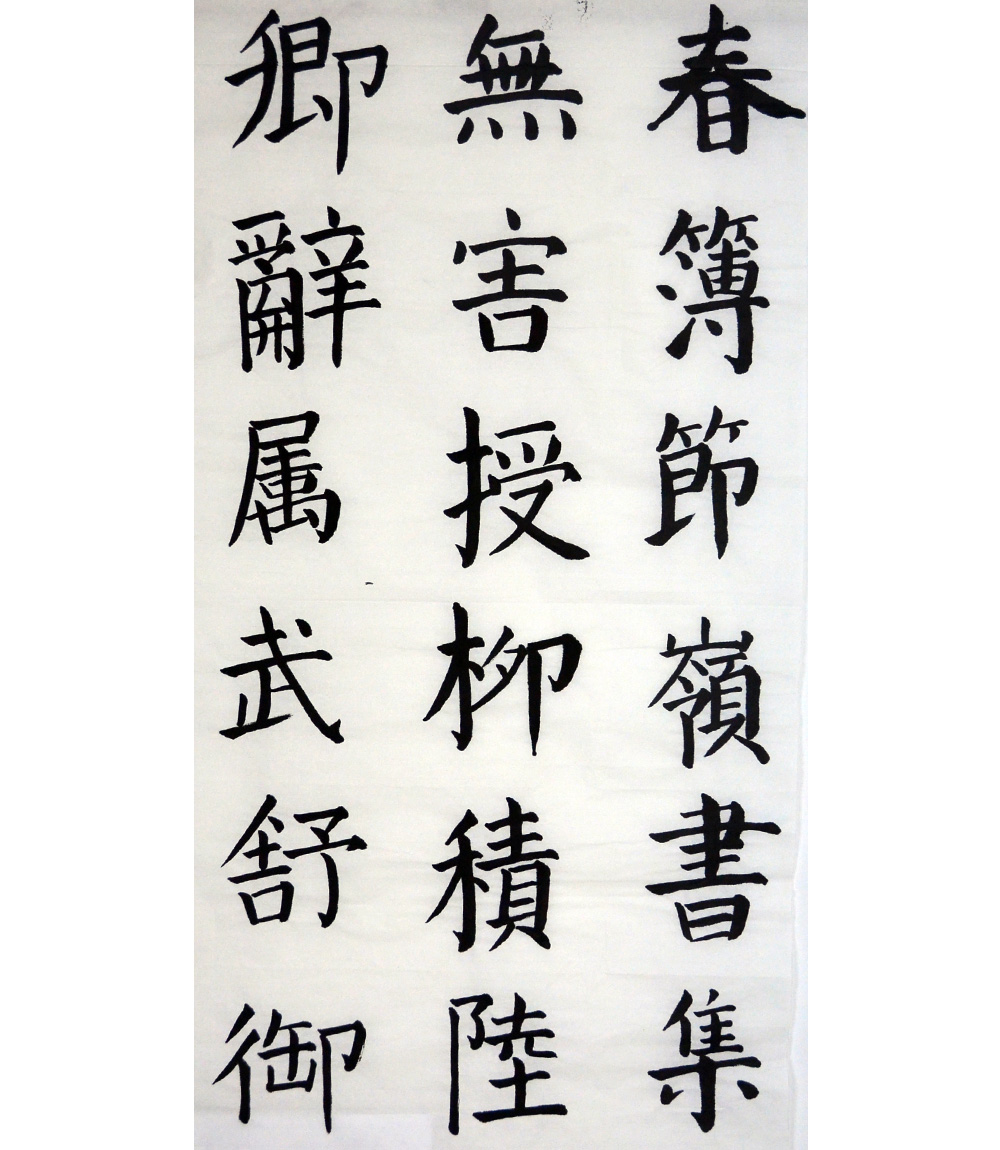 春簿節嶺書集
無害授柳積陸
卿辭属武舒御